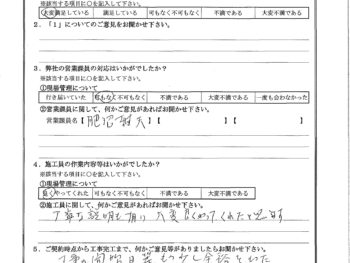 ※該当する項目に○を記入して下さい。
大変満足している 満足している 可もなく不可もなく 不満である 大変不満である
2．「1」についてのご意見をお聞かせ下さい。
3．弊社の営業課員の対応はいかがでしたか？
※該当する項目に○を記入して下さい。
①現場管理について
行き届いていた 可もなく不可もなく 不満である 大変不満である 一度も会わなかった
②営業課員に関して、何かご意見があればお聞かせ下さい。
営業課員名【 】【 】【 】
4．施工員の作業内容等はいかがでしたか？
※該当する項目に○を記入して下さい。
①現場管理について
良くやってくれた 可もなく不可もなく 不満である 大変不満である
②施工員に関して、何かご意見があればお聞かせ下さい。
丁寧な説明も有り 大変良くやってくれたと思います
5．ご契約時点から工事完了まで、何かご意見等がありましたらお聞かせ下さい。